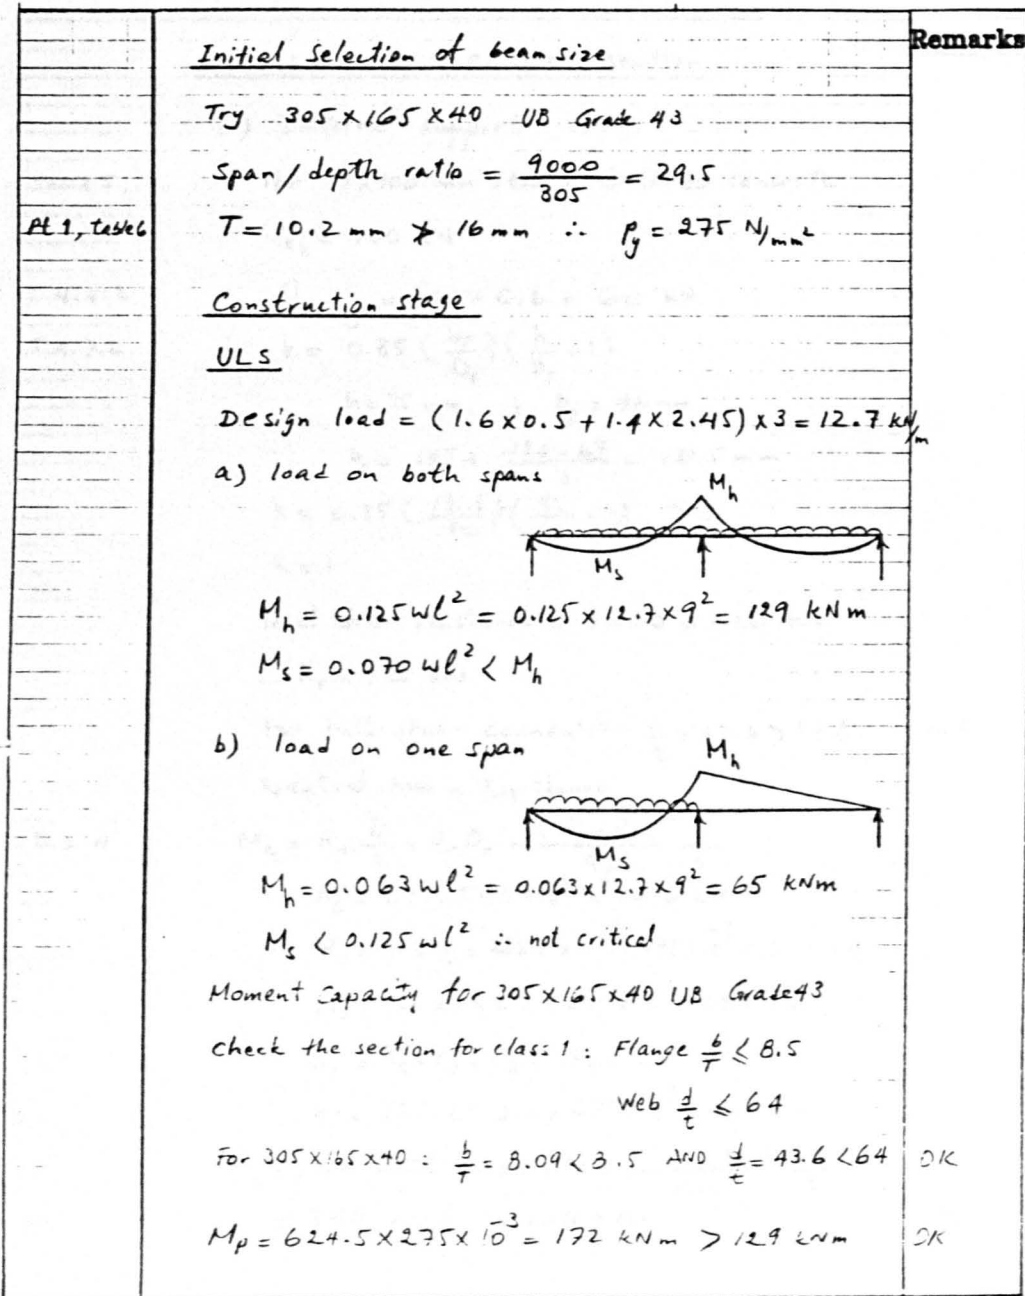 Remarks
Initial Selection of beam size
Try 305 x 165 x 40 UB Grade 43
Span / depth ratio = 9000/305 = 29.5
Pt 1, table 6 T = 10.2 mm ≯ 16 mm ∴ Py = 275 N/mm²
Construction stage
ULS
Design load = (1.6 x 0.5 + 1.4 x 2.45) x 3 = 12.7 kN/m
a) load on both spans
Mh
Ms
Mh = 0.125 wl² = 0.125 x 12.7 x 9² = 129 kNm
Ms = 0.070 wl² < Mh
b) load on one span
Mh
Ms
Mh = 0.063 wl² = 0.063 x 12.7 x 9² = 65 kNm
Ms < 0.125 wl² ∴ not critical
Moment Capacity for 305 x 165 x 40 UB Grade 43
Check the section for class 1 : Flange b/T ≤ 8.5
Web d/t ≤ 64
For 305 x 165 x 40 : b/T = 8.09 < 8.5 AND d/t = 43.6 < 64 OK
Mp = 624.5 x 275 x 10⁻³ = 172 kNm > 129 kNm OK